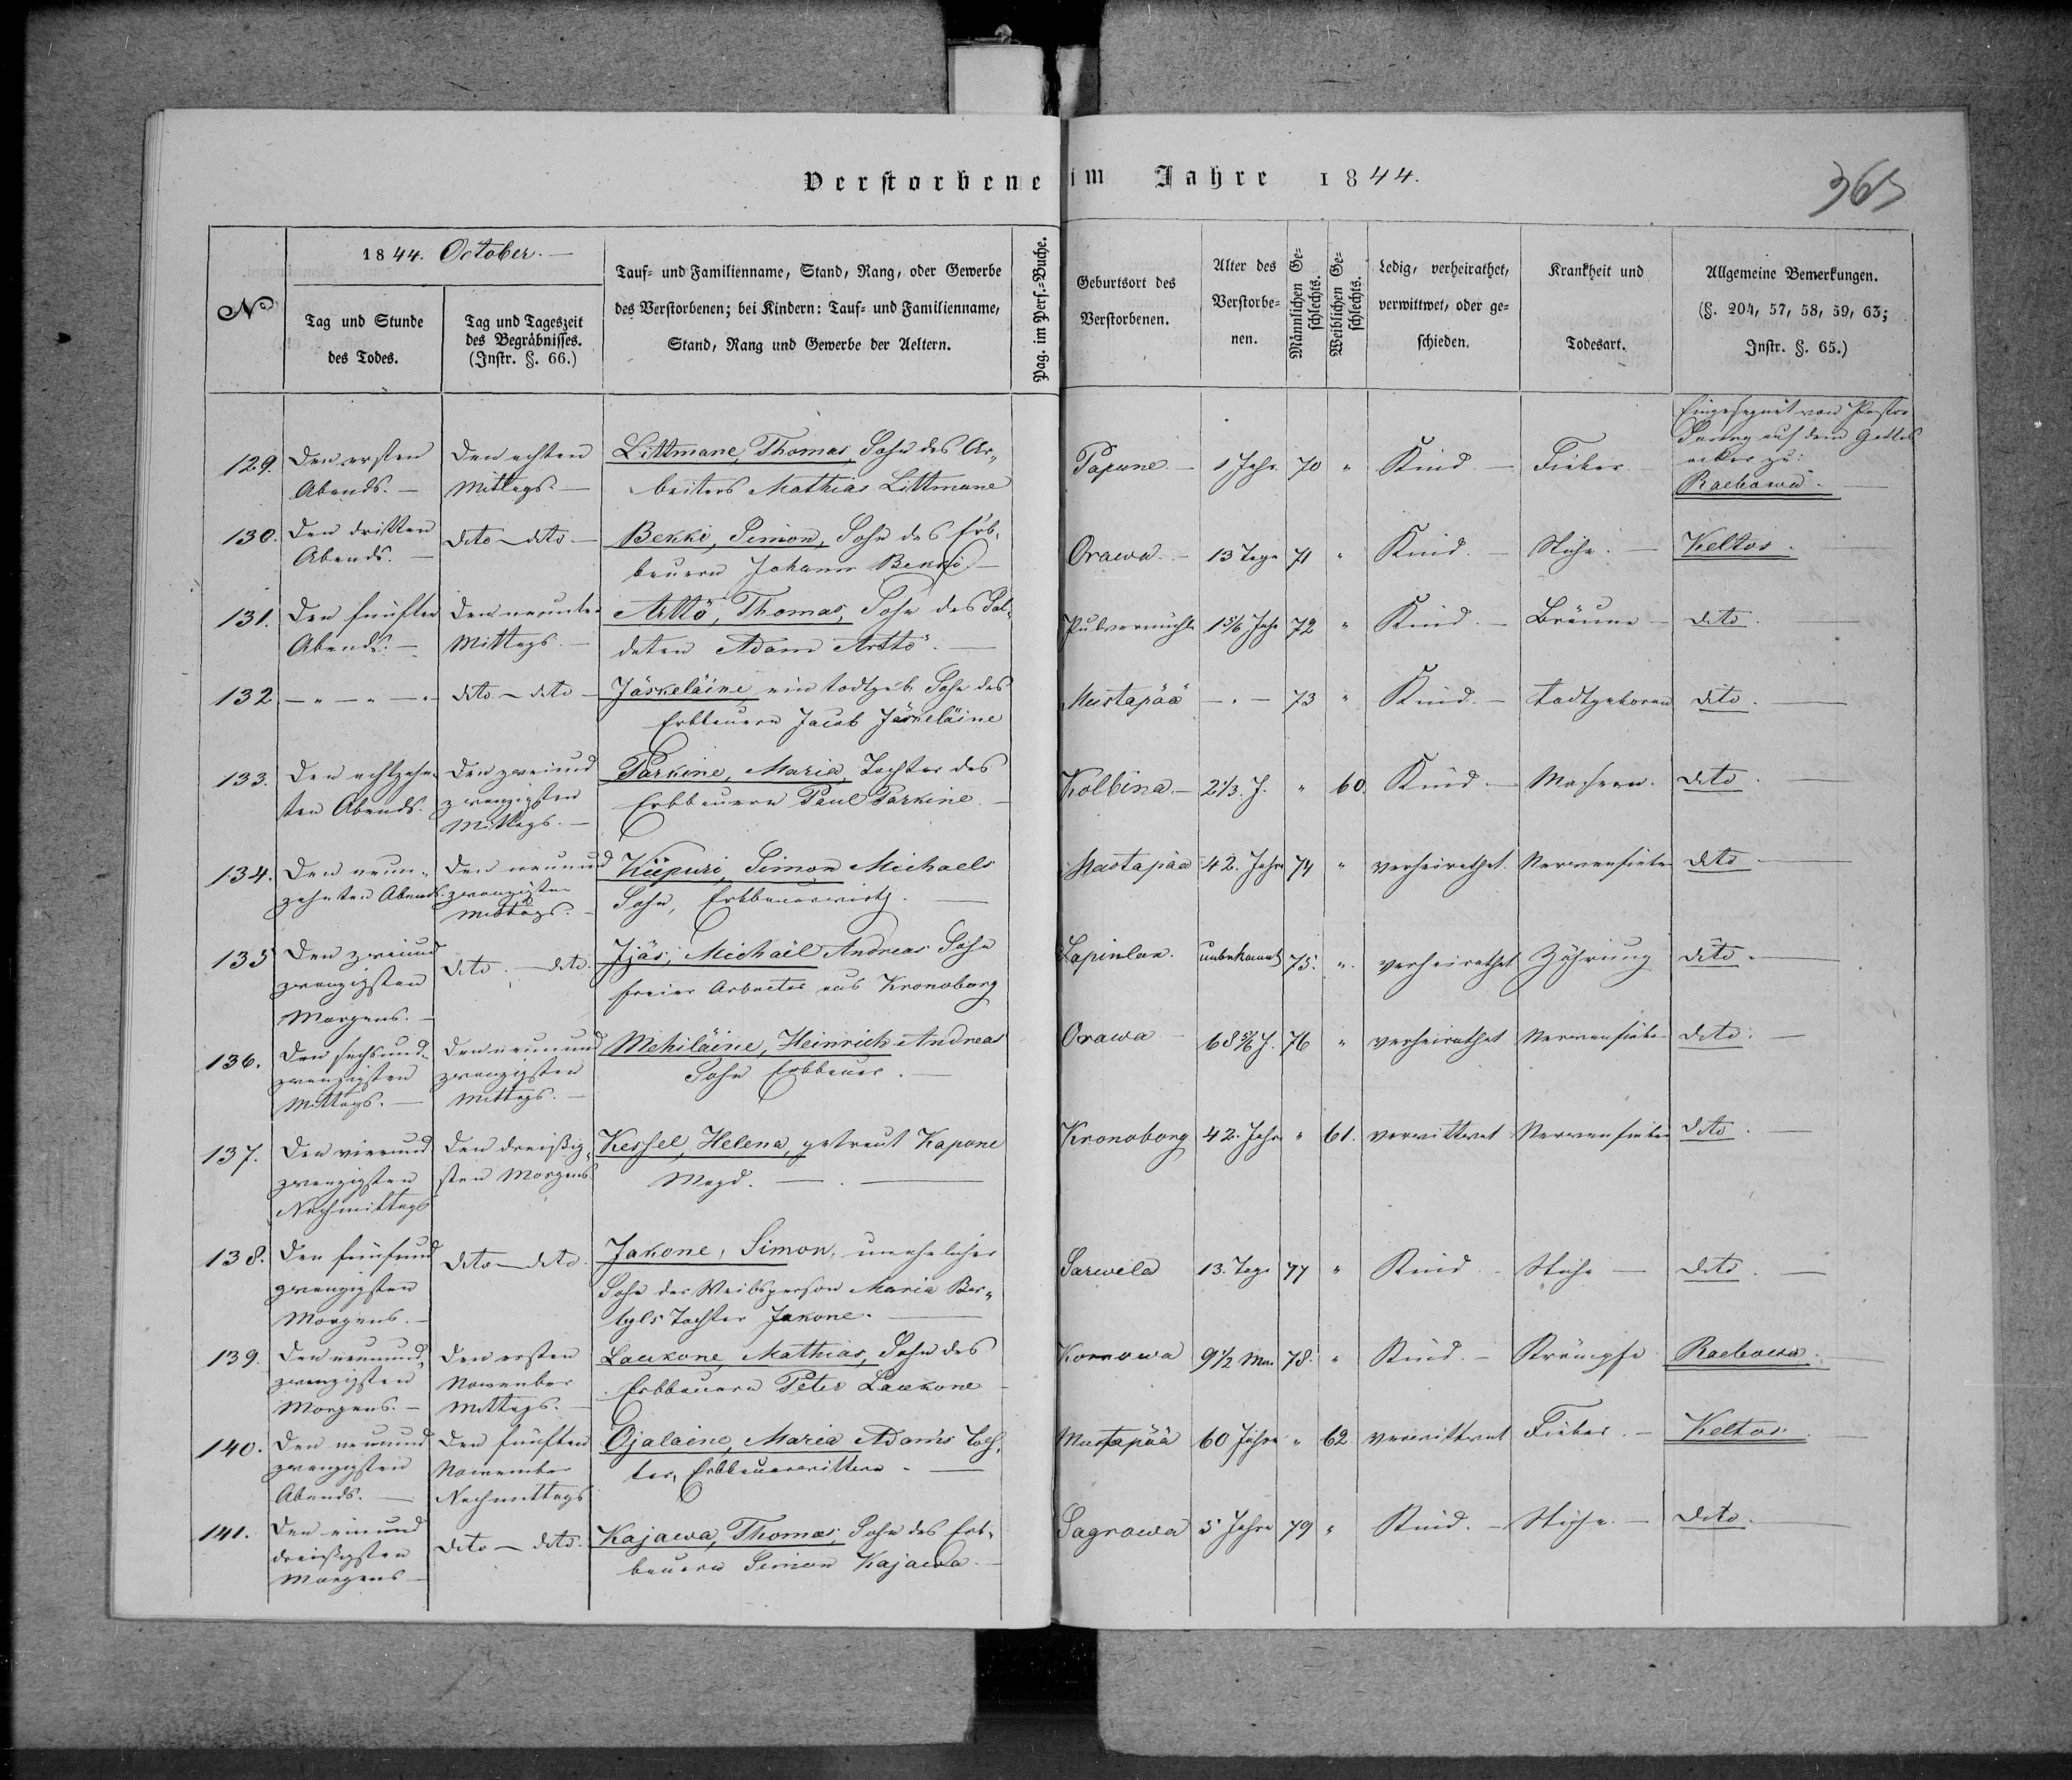 Verstorbene im Jahre 1844.
365
No
1844. October. —
Tag und Stunde
des Todes.
Tag und Tageszeit
des Begräbnisses.
(Instr. §. 66.)
Tauf- und Familienname, Stand, Rang, oder Gewerbe
des Verstorbenen; bei Kindern: Tauf- und Familienname,
Stand, Rang und Gewerbe der Aeltern.
Pag. im Pers.-Buche.
Geburtsort des
Verstorbenen.
Alter des
Verstorbe-
nen.
Männlichen Ge-
schlechts.
Weiblichen Ge-
schlechts.
Ledig, verheirathet,
verwittwet, oder ge-
schieden.
Krankheit und
Todesart.
Allgemeine Bemerkungen.
(§. 204, 57, 58, 59, 63;
Instr. §. 65.)
129.
Den ersten
Abends. —
Den achten
Mittags. —
Littmane, Thomas, Sohn des Ar„
beiters Mathias Littmane
Papune. —
1 Jahr
70
"
Kind. —
Fieber.
Eingesegnet von Pastor
auf dem Gottes
acker zu:
Raebowa. —
130.
Den dritten
Abends. —
dito — dito —
Bekki, Simon, Sohn des Erb„
bauern Johann Bekki —
Orawa. —
13 Tage
71
"
Kind. —
Stiche. —
Keltos. —
131.
Den fünften
Abends. —
Den neunten
Mittags. —
Arttö, Thomas, Sohn des Sol„
daten Adam Arttö. —
Pulvermühle
1 5/6 Jahr
72
"
Kind. —
Bräune —
dito. —
132
— " — " — "
dito — dito —
Jäskeläine, ein todtgeb. Sohn des
Erbbauern Jacob Jäskeläine
Mustapää
— " —
73
"
Kind. —
todtgeboren
dito. —
133.
Den achtzehn„
ten Abends.
Den zweiund
zwanzigsten
Mittags. —
Parkine, Maria, Tochter des
Erbbauern Paul Parkine. —
Kolbina. —
2 1/3. J.
"
60.
Kind. —
Masern.
dito. —
134.
Den neun„
zehnten Abends.
Den neunund
zwanzigsten
Mittags. —
Kiipuri, Simon Michaels
Sohn, Erbbauerwirth. —
Mustapää
42. Jahre
74
"
verheirathet.
Nervenfieber
dito —
135
Den zweiund
zwanzigsten
Morgens. —
dito. — dito.
Jjäs, Michaël Andreas Sohn
freier Arbeiter aus Kronoborg
Lapinlax.
unbekannt
75.
".
verheirathet
Zehrung
dito. —
136.
Den sechsund„
zwanzigsten
Mittags. —
Den neunund
zwanzigsten
Mittags. —
Mehiläine, Heinrich Andreas
Sohn Erbbauer. —
Orawa —
68 5/6 J.
76
"
verheirathet
Nervenfieber
dito. —
137.
Den vierund
zwanzigsten
Nachmittags
Den dreißig„
sten Morgens
Kessel, Helena, getraut Kapone
Magd. — . —
Kronoborg
42. Jahr
"
61.
verwittwet
Nervenfieber
dito. —
138.
Den fünfund
zwanzigsten
Morgens. —
dito — dito.
Jakone, Simon, unehelicher
Sohn der Weibsperson Maria Ber„
tyls Tochter Jakone. —
Sarwela
13. Tage
77
"
Kind. —
Stiche —
dito. —
139.
Den neunund„
zwanzigsten
Morgens. —
Den ersten
November
Mittags. —
Laukone, Mathias, Sohn des
Erbbauern Peter Laukone —
Kornowa
9 1/2 Mon
78.
"
Kind. —
Krämpfe
Raebowa. —
140.
Den neunund
zwanzigsten
Abends. —
Den fünften
November
Nachmittags
Ojalaine, Maria Adams Toch„
ter, Erbbauerwittwe. —
Mustapää
60 Jahre
"
62.
verwittwet
Fieber. —
Keltos. —
141.
Den einund
dreißigsten
Morgens —
dito — dito.
Kajawa, Thomas, Sohn des Erb„
bauern Simon Kajawa. —
Sagrawa
5 Jahre
79
"
Kind. —
Stiche. —
dito. —